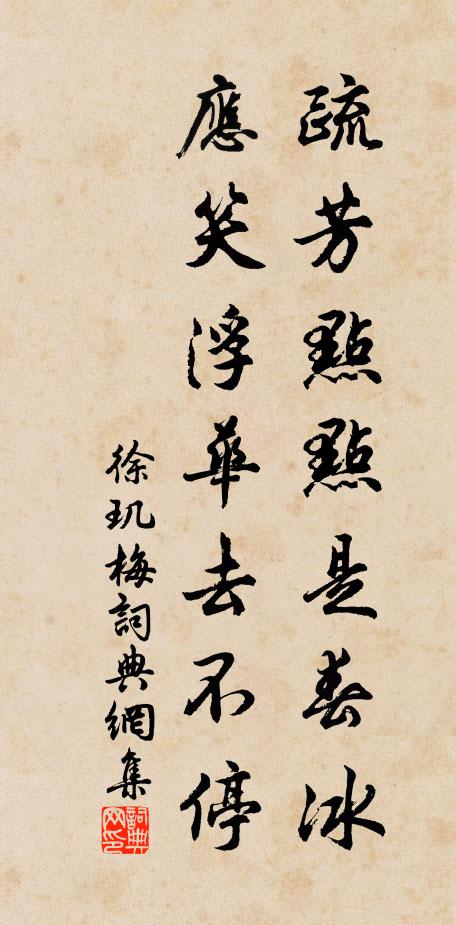 疏芳點點是春冰
應笑浮華去不停
徐玑梅詞典網集
詞典
网印